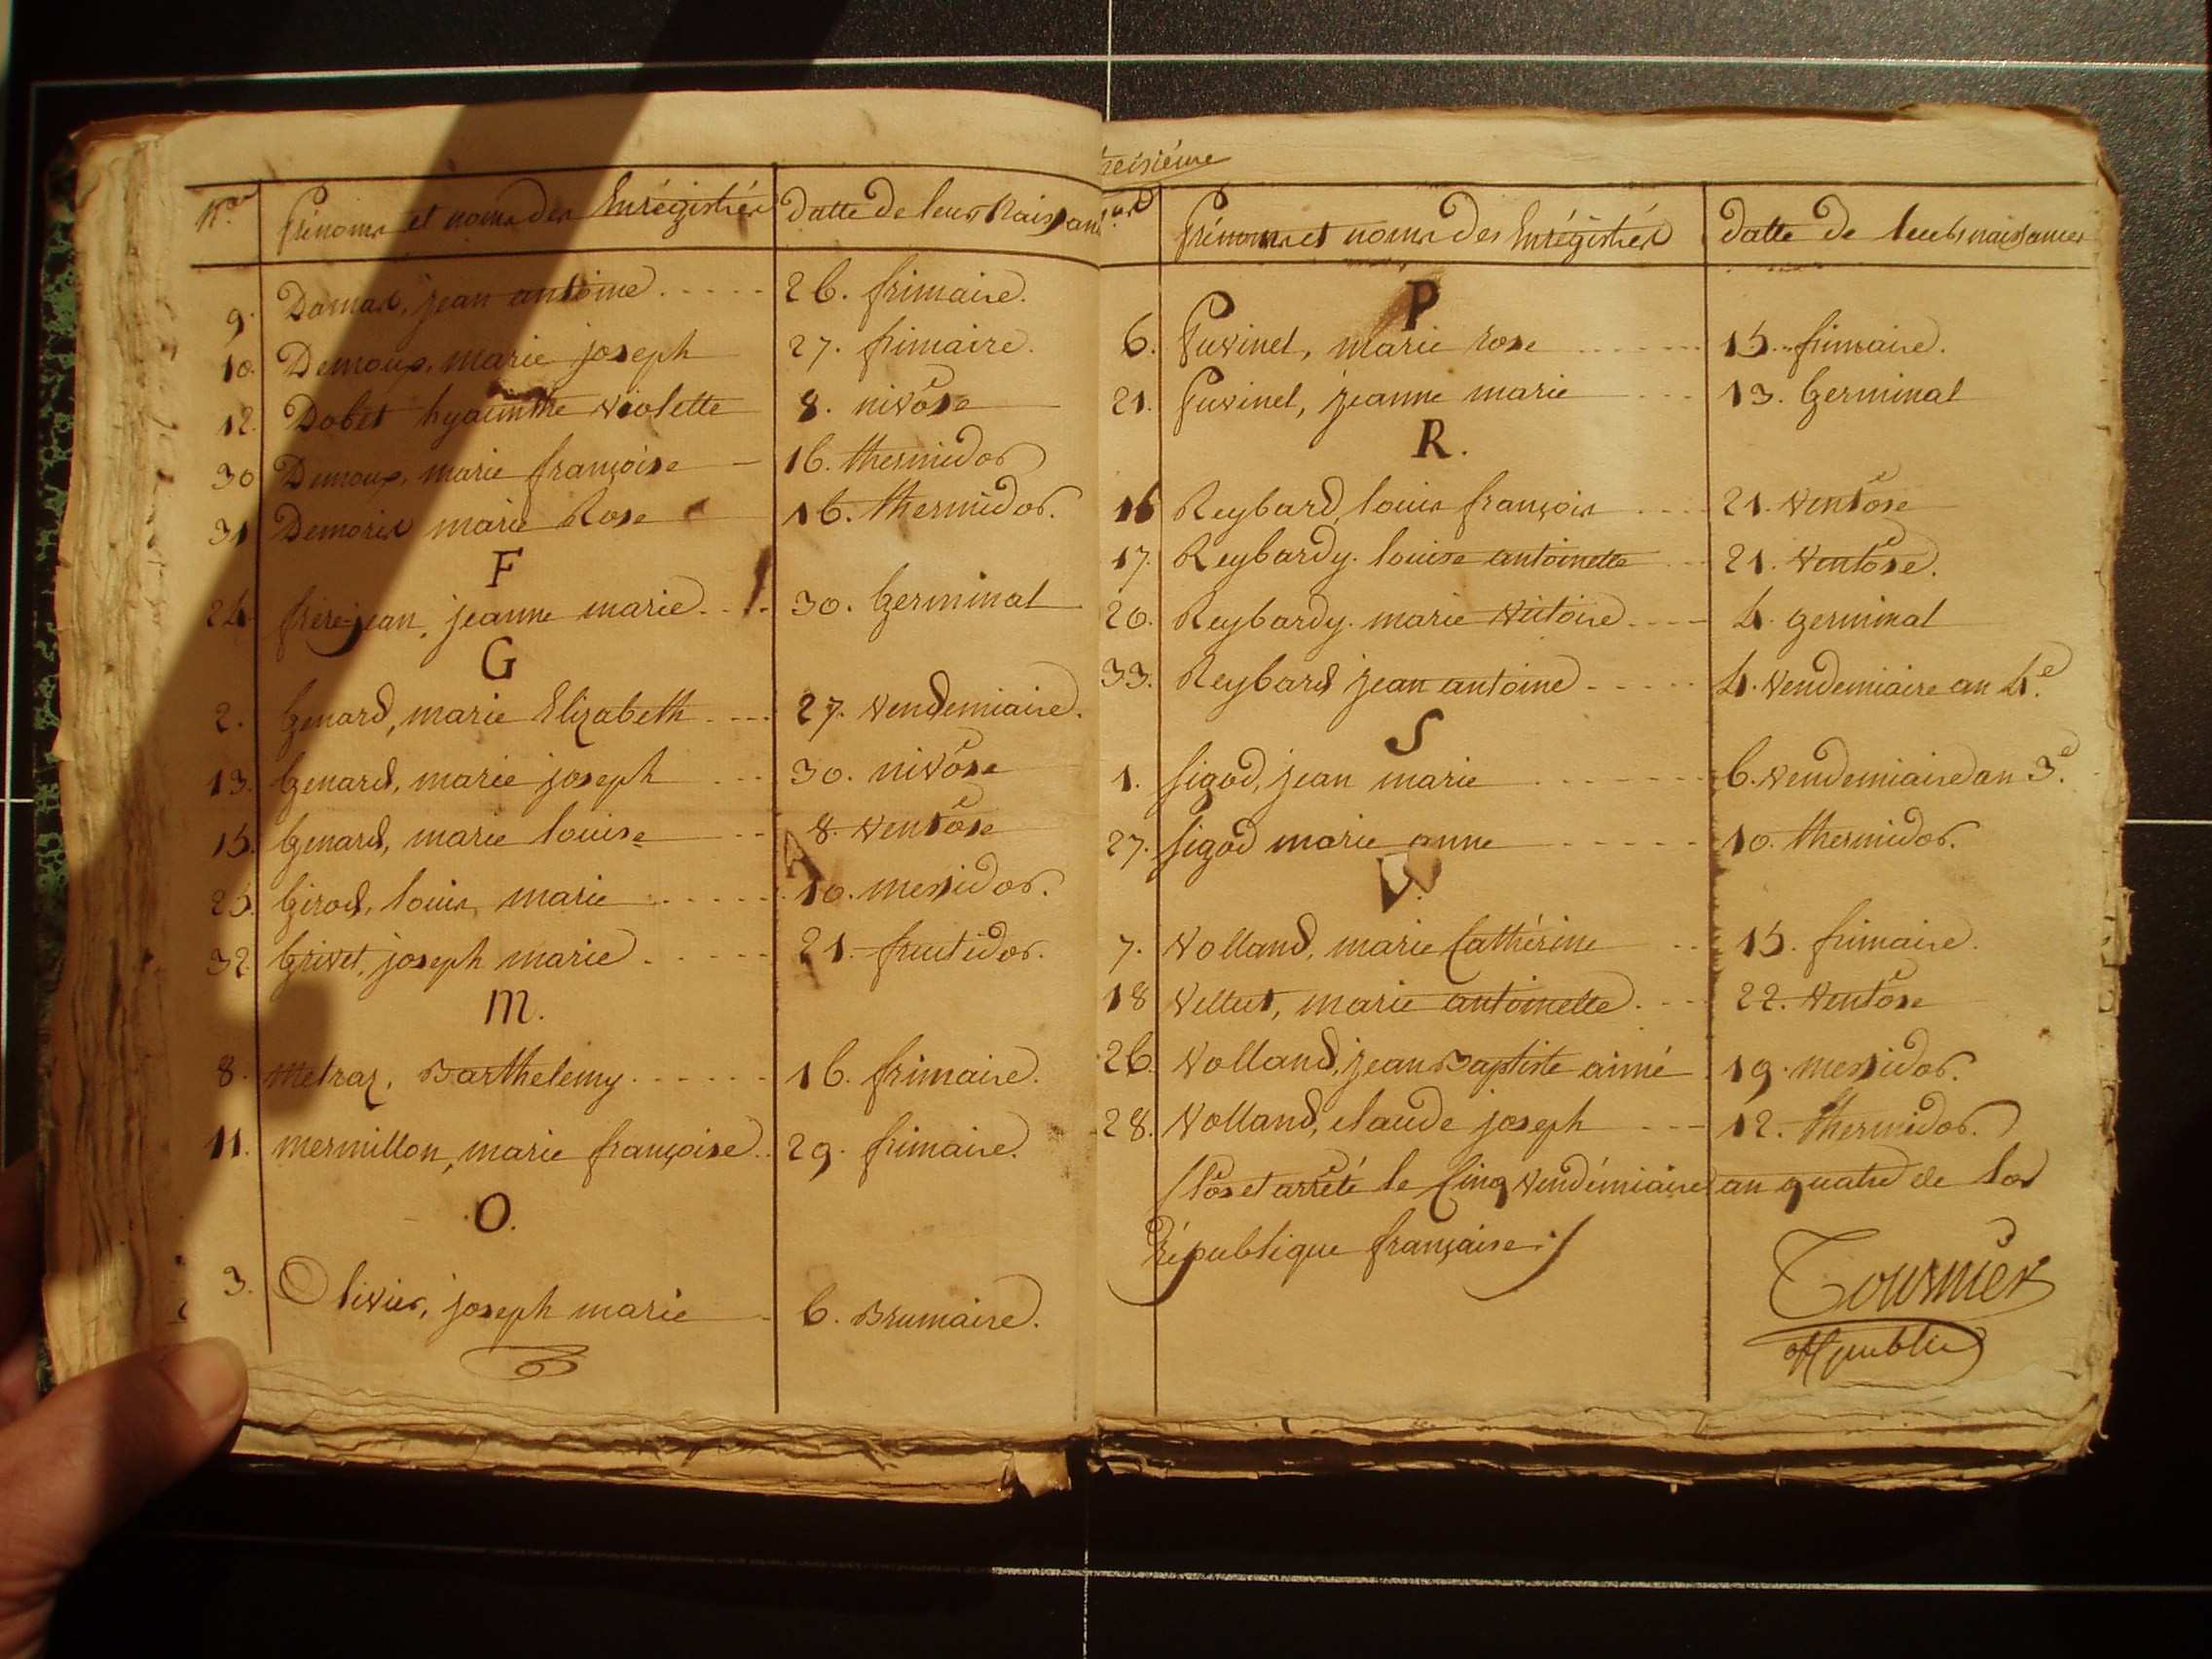 N.os Prénoms et noms des Enrégistrés Datte de leurs Naissan
9. Damas, jean antoine 26. frimaire.
10. Demoux, marie joseph 27. frimaire.
12. Dobet hyacinthe violette 8. nivôse
30 Demoux, marie françoise 16. thermidor
31 marie Rose 16. thermidor.
F
24. frère-jean, jeanne marie 30. Germinal
G
2. Genard, marie Elizabeth 27. vendemiaire.
13. Genard, marie joseph 30. nivôse
15. Genard, marie louise 8. ventôse
25. Girod, louis marie 10. messidor.
32. Grivet, joseph marie 21. fructidor.
M.
8. Metraz, Barthelemy 16. frimaire.
11. Mermillon, marie françoise 29. frimaire.
O.
3. Olivier, joseph marie 6. Brumaire.
treisiéme
Prénoms et noms des Enrégistrés datte de leurs naissances
P
6. Puvinel, marie rose 15. frimaire.
21. Puvinel, jeanne marie 13. Germinal
R.
16 Reybard, louis françois 21. ventôse
17. Reybardy. louise antoinette 21. ventôse.
20. Reybardy. marie victoire 4. germinal
33. Reybard jean antoine 4. vendemiaire an 4.e
S
1. Sigod, jean marie 6. vendemiaire an 3.e
27. Sigod marie anne 10. thermidor.
V.
7. Volland, marie Cathérine 15. frimaire.
18 Vellut, marie antoinette 22. ventôse
26. Volland, jean Baptiste aimé 19. messidor.
28. Volland, claude joseph 12. thermidor.
Clos et arrêté le Cinq vendémiaire an quatre de la
République française
Tournier